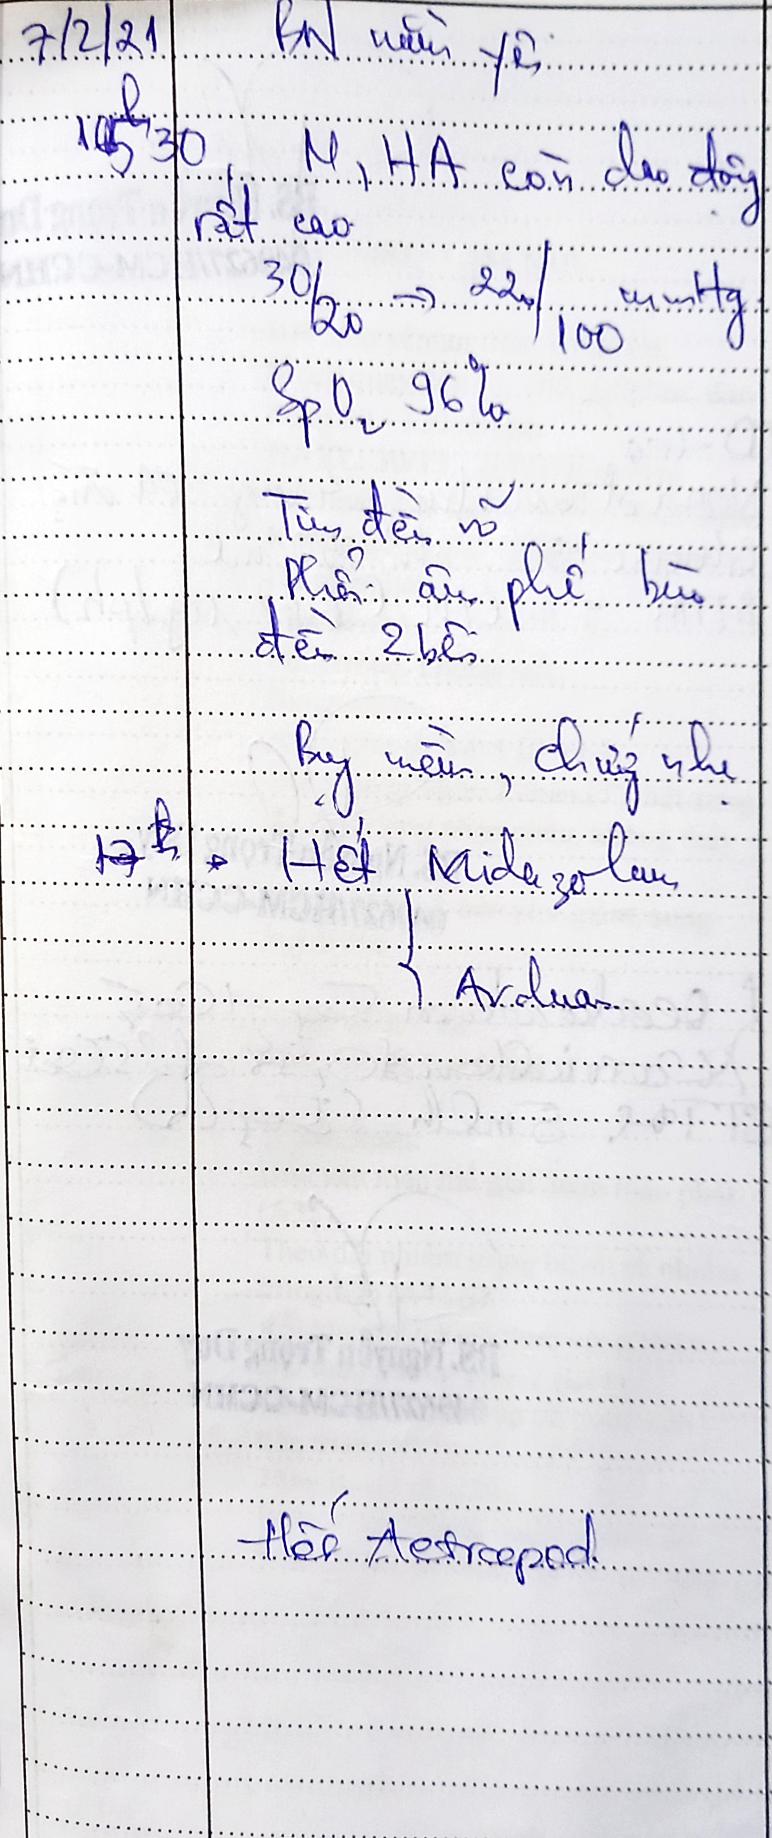 7/2/21 BN nằm yên
15h30 M, HA còn dao động
rất cao
30/20 → 220/100 mmHg
SpO2 96%
Tim đều rõ
Phổi âm phế bào
đều 2 bên
Bụng mềm, chướng nhẹ
17h Hết Midazolam
Arduan
Hết Aetrcepod